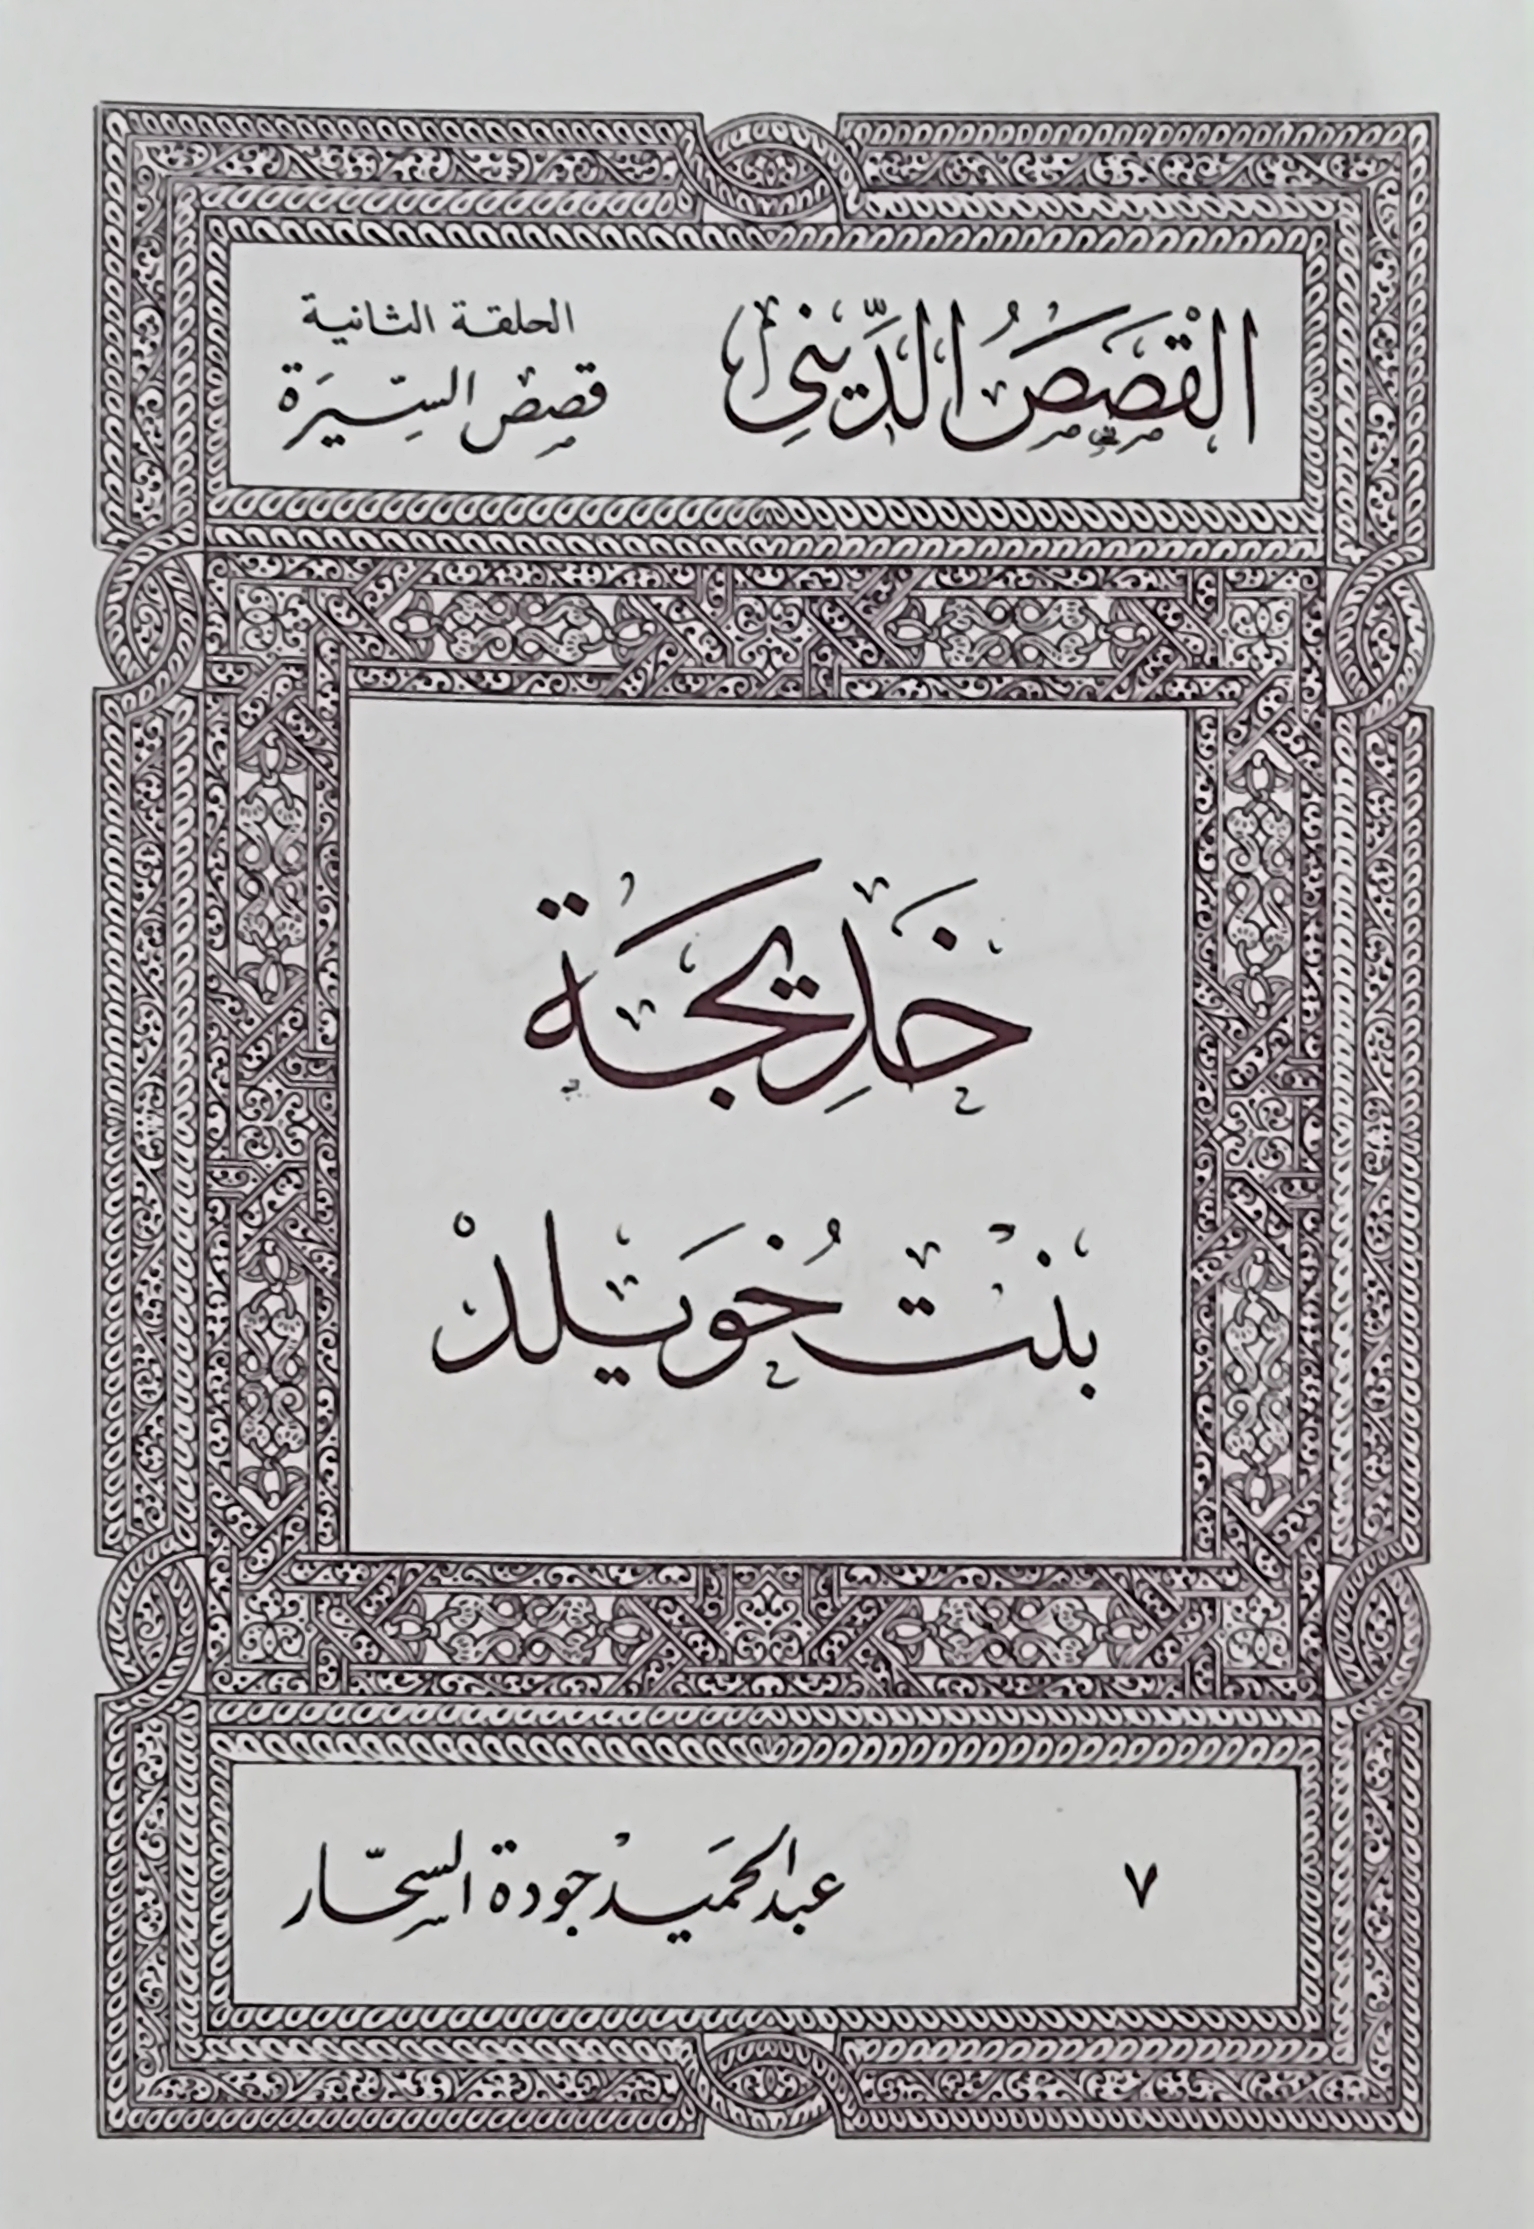 القَصَصُ الدِّينِي
الحلقة الثانية
قصص السِّيرَة
خَدِيجَة
بنت خُوَيلِدْ
٧
عبد الحميد جودة السحّار